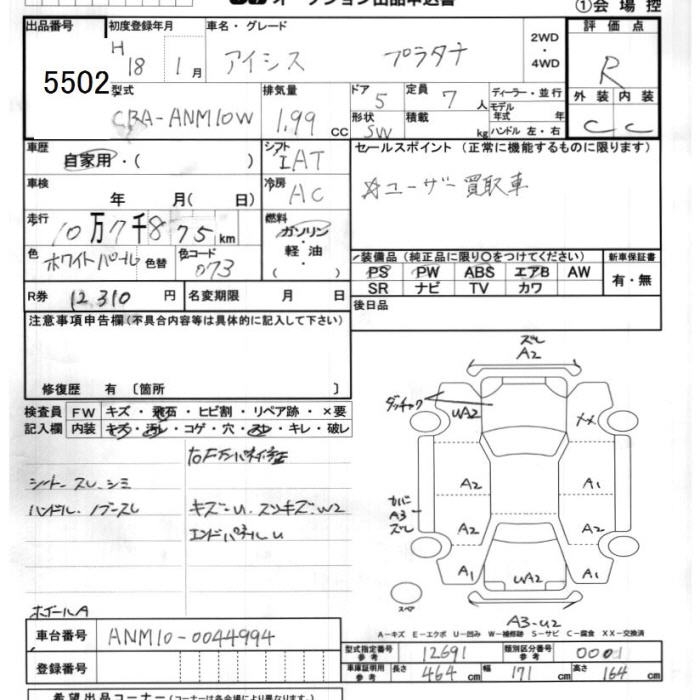 オークション出品申込書
①会場控
出品番号 初度登録年月 車名・グレード 2WD・4WD 評価点
5502 H18 1月 アイシス プラタナ R
型式 排気量 ドア 5 定員 7人 ディーラー・並行 外装 内装
CBA-ANM10W 1.99 cc 形状 SW 積載 kg モデル年式 年 ハンドル 左・右 C C
車歴 自家用・( ) シフト IAT セールスポイント (正常に機能するものに限ります)
車検 年 月(日) 冷房 AC ☆ユーザー買取車
走行 10万7千875km 燃料 ガソリン・軽油
色 ホワイトパール 色替 色コード 073
装備品 (純正品に限り○をつけてください) 新車保証書
PS PW ABS エアB AW 有・無
SR ナビ TV カワ
R券 12,310円 名変期限 月 日 後日品
注意事項申告欄(不具合内容等は具体的に記入して下さい)
修復歴 有〔箇所 〕
検査員記入欄 FW キズ・飛石・ヒビ割・リペア跡・×要
内装 キズ・汚レ・コゲ・穴・スレ・キレ・破レ
シート スレ、シミ
ハンドル・ノブスレ
キズ一U、スリキズ一W2
エンドパネルU
ホイールA
ズレ
A2
UA2
XX
A2
A1
カバー
A3
ズレ
A2
A2
A1
UA2
A1
スペア
A3-U2
A-キズ E-エクボ U-凹み W-補修跡 S-サビ C-腐食 XX-交換済
車台番号 ANM10-0044994
型式指定番号 参考 12691 類別区分番号 参考 0001
登録番号
車庫証明用 参考 長さ 464cm 幅 171cm 高さ 164cm
希望出品コーナー(コーナーは各会場により異なります。)